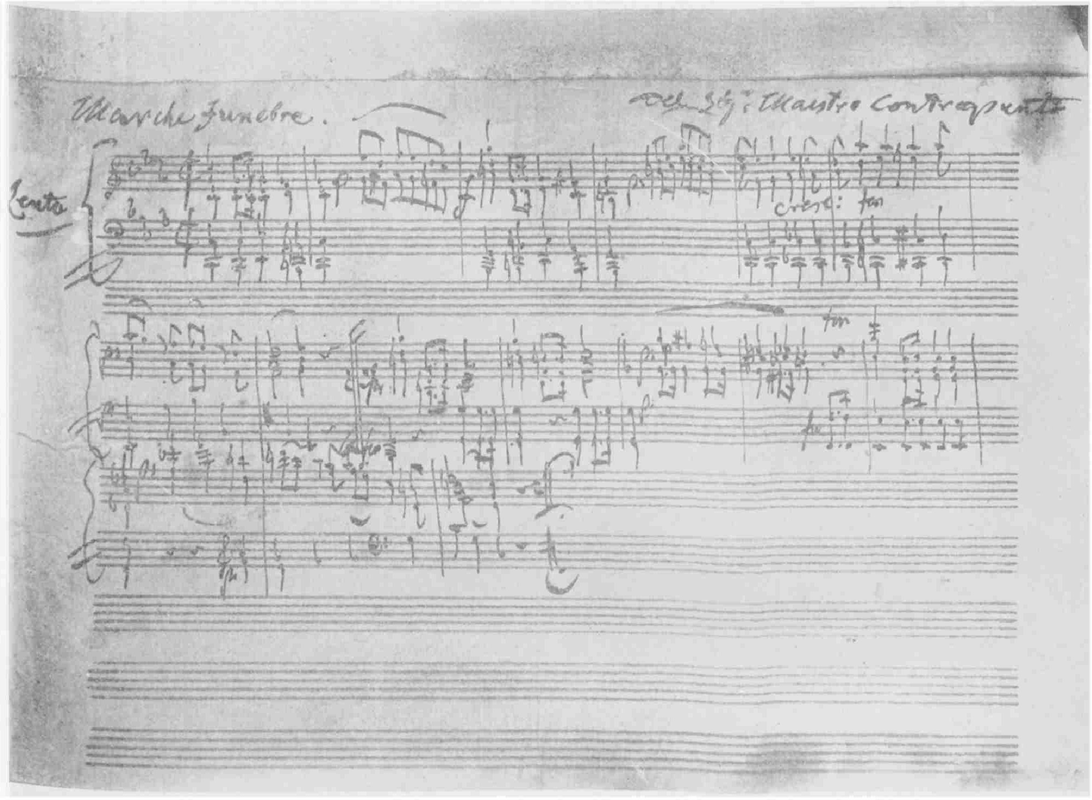 Marche funebre. Del Sigr: Maestro Contrapunto
Lento
cresc: for
for